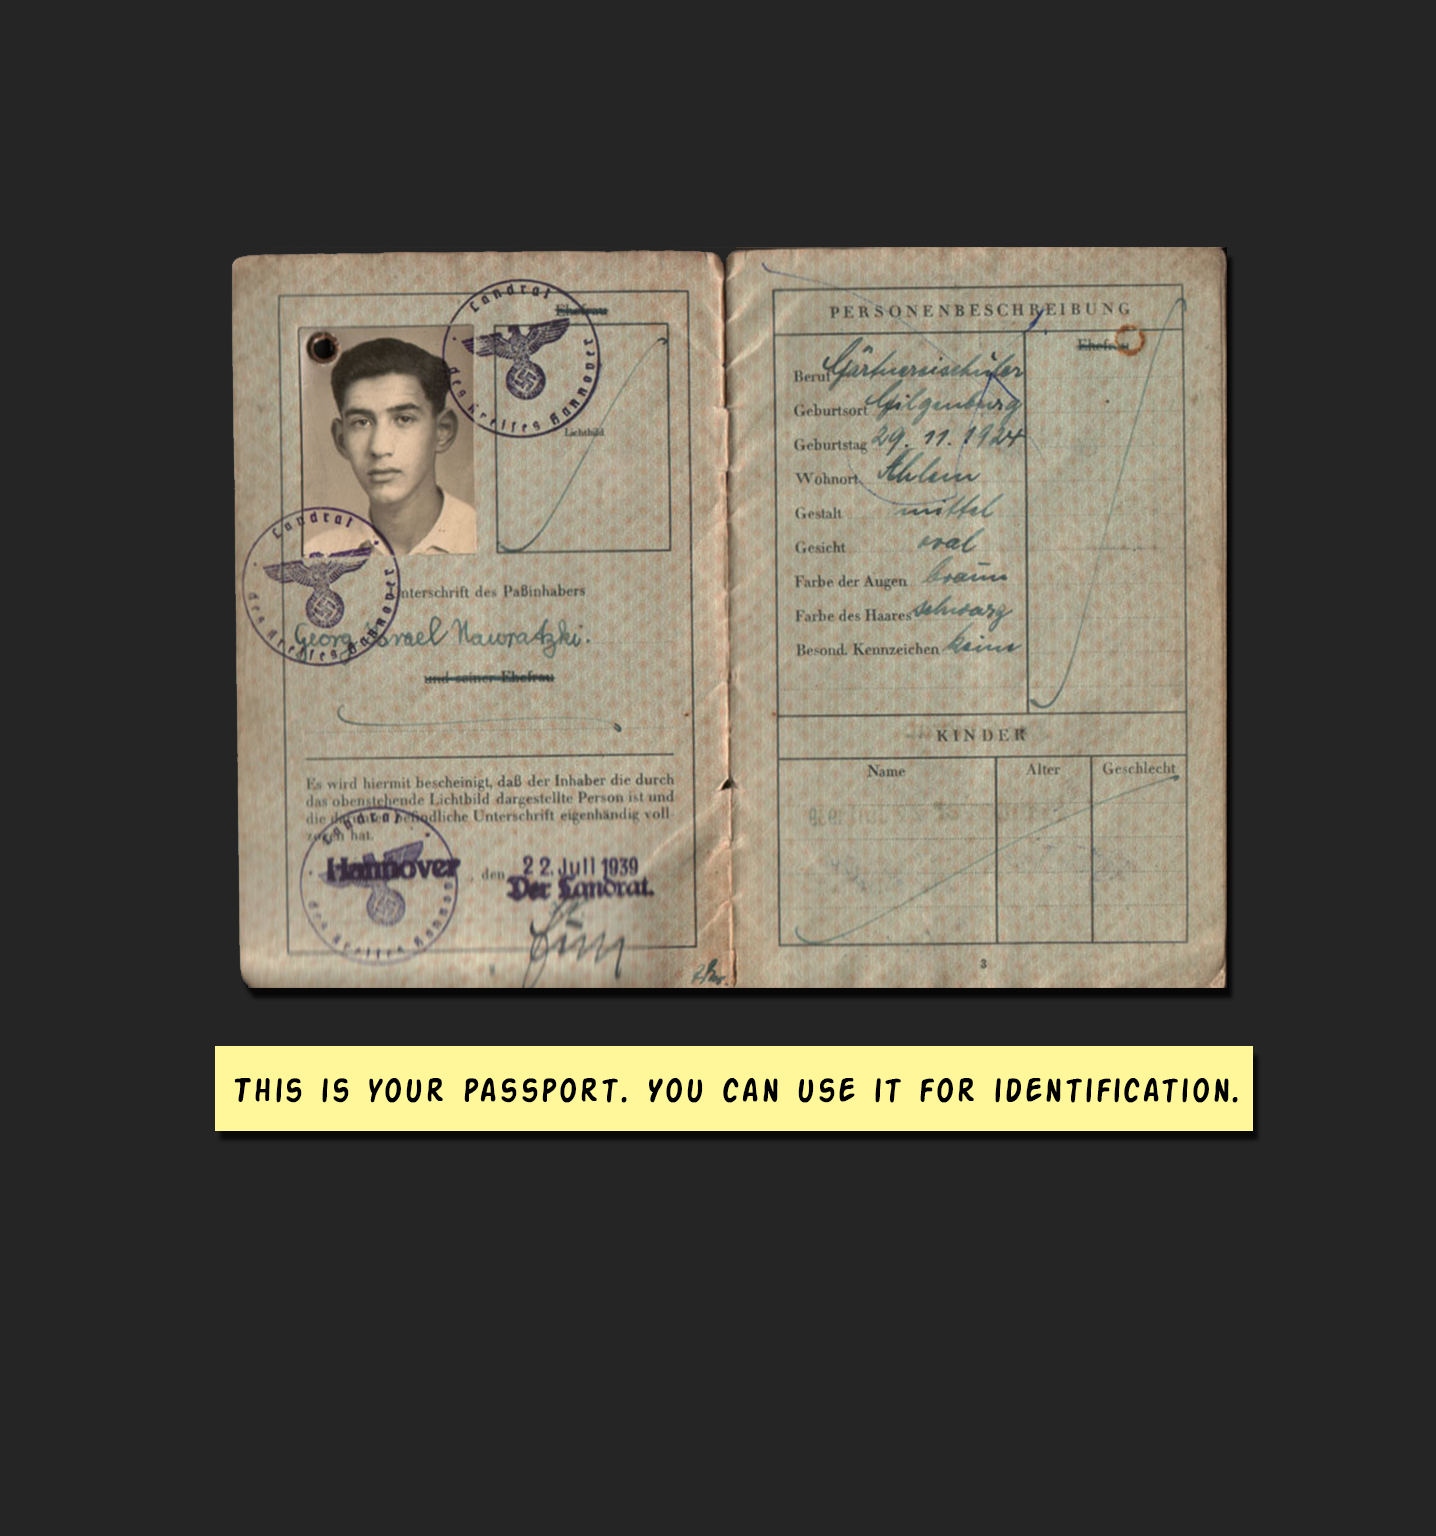 Landrat
des Kreises Hannover
Ehefrau
Lichtbild
Landrat
des Kreises Hannover
nterschrift des Paßinhabers
Georg Israel Nawratzki.
und seiner Ehefrau
Es wird hiermit bescheinigt, daß der Inhaber die durch
das obenstehende Lichtbild dargestellte Person ist und
die darunter befindliche Unterschrift eigenhändig voll-
zogen hat.
Landrat
Hannover, den 22. Juli 1939
Der Landrat.
des Kreises Hannover
PERSONENBESCHREIBUNG
Ehefrau
Beruf Gärtnereischüler
Geburtsort Gilgenburg
Geburtstag 29. 11. 1924
Wohnort Ahlem
Gestalt mittel
Gesicht oval
Farbe der Augen braun
Farbe des Haares schwarz
Besond. Kennzeichen keine
KINDER
Name Alter Geschlecht
3
THIS IS YOUR PASSPORT. YOU CAN USE IT FOR IDENTIFICATION.